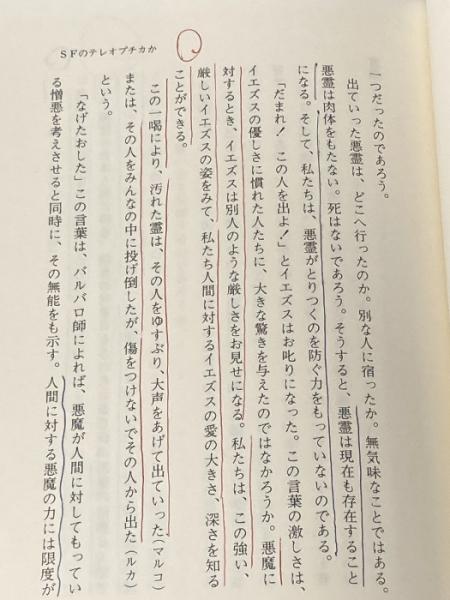 SFのテレオプチカか
一つだったのであろう。
出ていった悪霊は、どこへ行ったのか。別な人に宿ったか。無気味なことではある。
悪霊は肉体をもたない。死はないであろう。そうすると、悪霊は現在も存在すること
になる。そして、私たちは、悪霊がとりつくのを防ぐ力をもっていないのである。
「だまれ！　この人を出よ！」とイエズスはお叱りになった。この言葉の激しさは、
イエズスの優しさに慣れた人たちに、大きな驚きを与えたのではなかろうか。悪魔に
対するとき、イエズスは別人のような厳しさをお見せになる。私たちは、この強い、
厳しいイエズスの姿をみて、私たち人間に対するイエズスの愛の大きさ、深さを知る
ことができる。
この一喝により、汚れた霊は、その人をゆすぶり、大声をあげて出ていった（マルコ）
または、その人をみんなの中に投げ倒したが、傷をつけないでその人から出た（ルカ）
という。
「なげたおした」この言葉は、バルバロ師によれば、悪魔が人間に対してもってい
る憎悪を考えさせると同時に、その無能をも示す。人間に対する悪魔の力には限度が